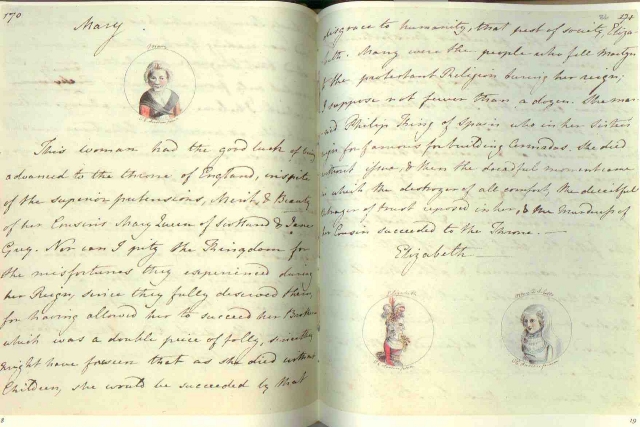 170
Mary
This woman had the good luck of being
advanced to the throne of England, inspite
of the superior pretensions, Merit, & Beauty
of her Cousins Mary Queen of Scotland & Jane
Grey. Nor can I pity the Kingdom for
the misfortunes they experienced during
her Reign, since they fully deserved them,
for having allowed her to succeed her Brother
which was a double peice of folly, since they
might have foreseen that as she died without
Children, she would be succeeded by that
8
171
disgrace to humanity, that pest of society, Eliza-
beth. Many were the people who fell Martyrs
to the protestant Religion during her reign;
I suppose not fewer than a dozen. She mar-
ried Philip King of Spain who in her Sister's
reign for famous for building Armadas. She died
without issue, & then the dreadful moment came
in which the destroyer of all comfort, the deceitful
Betrayer of trust reposed in her, & the Murderess of
her Cousin succeeded to the Throne. —
Elizabeth —
19